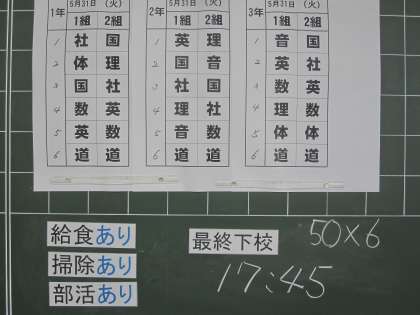 5月31日 (火) 5月31日 (火) 5月31日 (火)
1年 1組 2組 2年 1組 2組 3年 1組 2組
1 社 国 1 英 理 1 音 国
2 体 理 2 国 音 2 英 社
3 国 社 3 社 国 3 数 英
4 数 英 4 理 社 4 理 数
5 英 数 5 音 数 5 体 体
6 道 道 6 道 道 6 道 道
給食あり
掃除あり
部活あり
最終下校
50×6
17:45